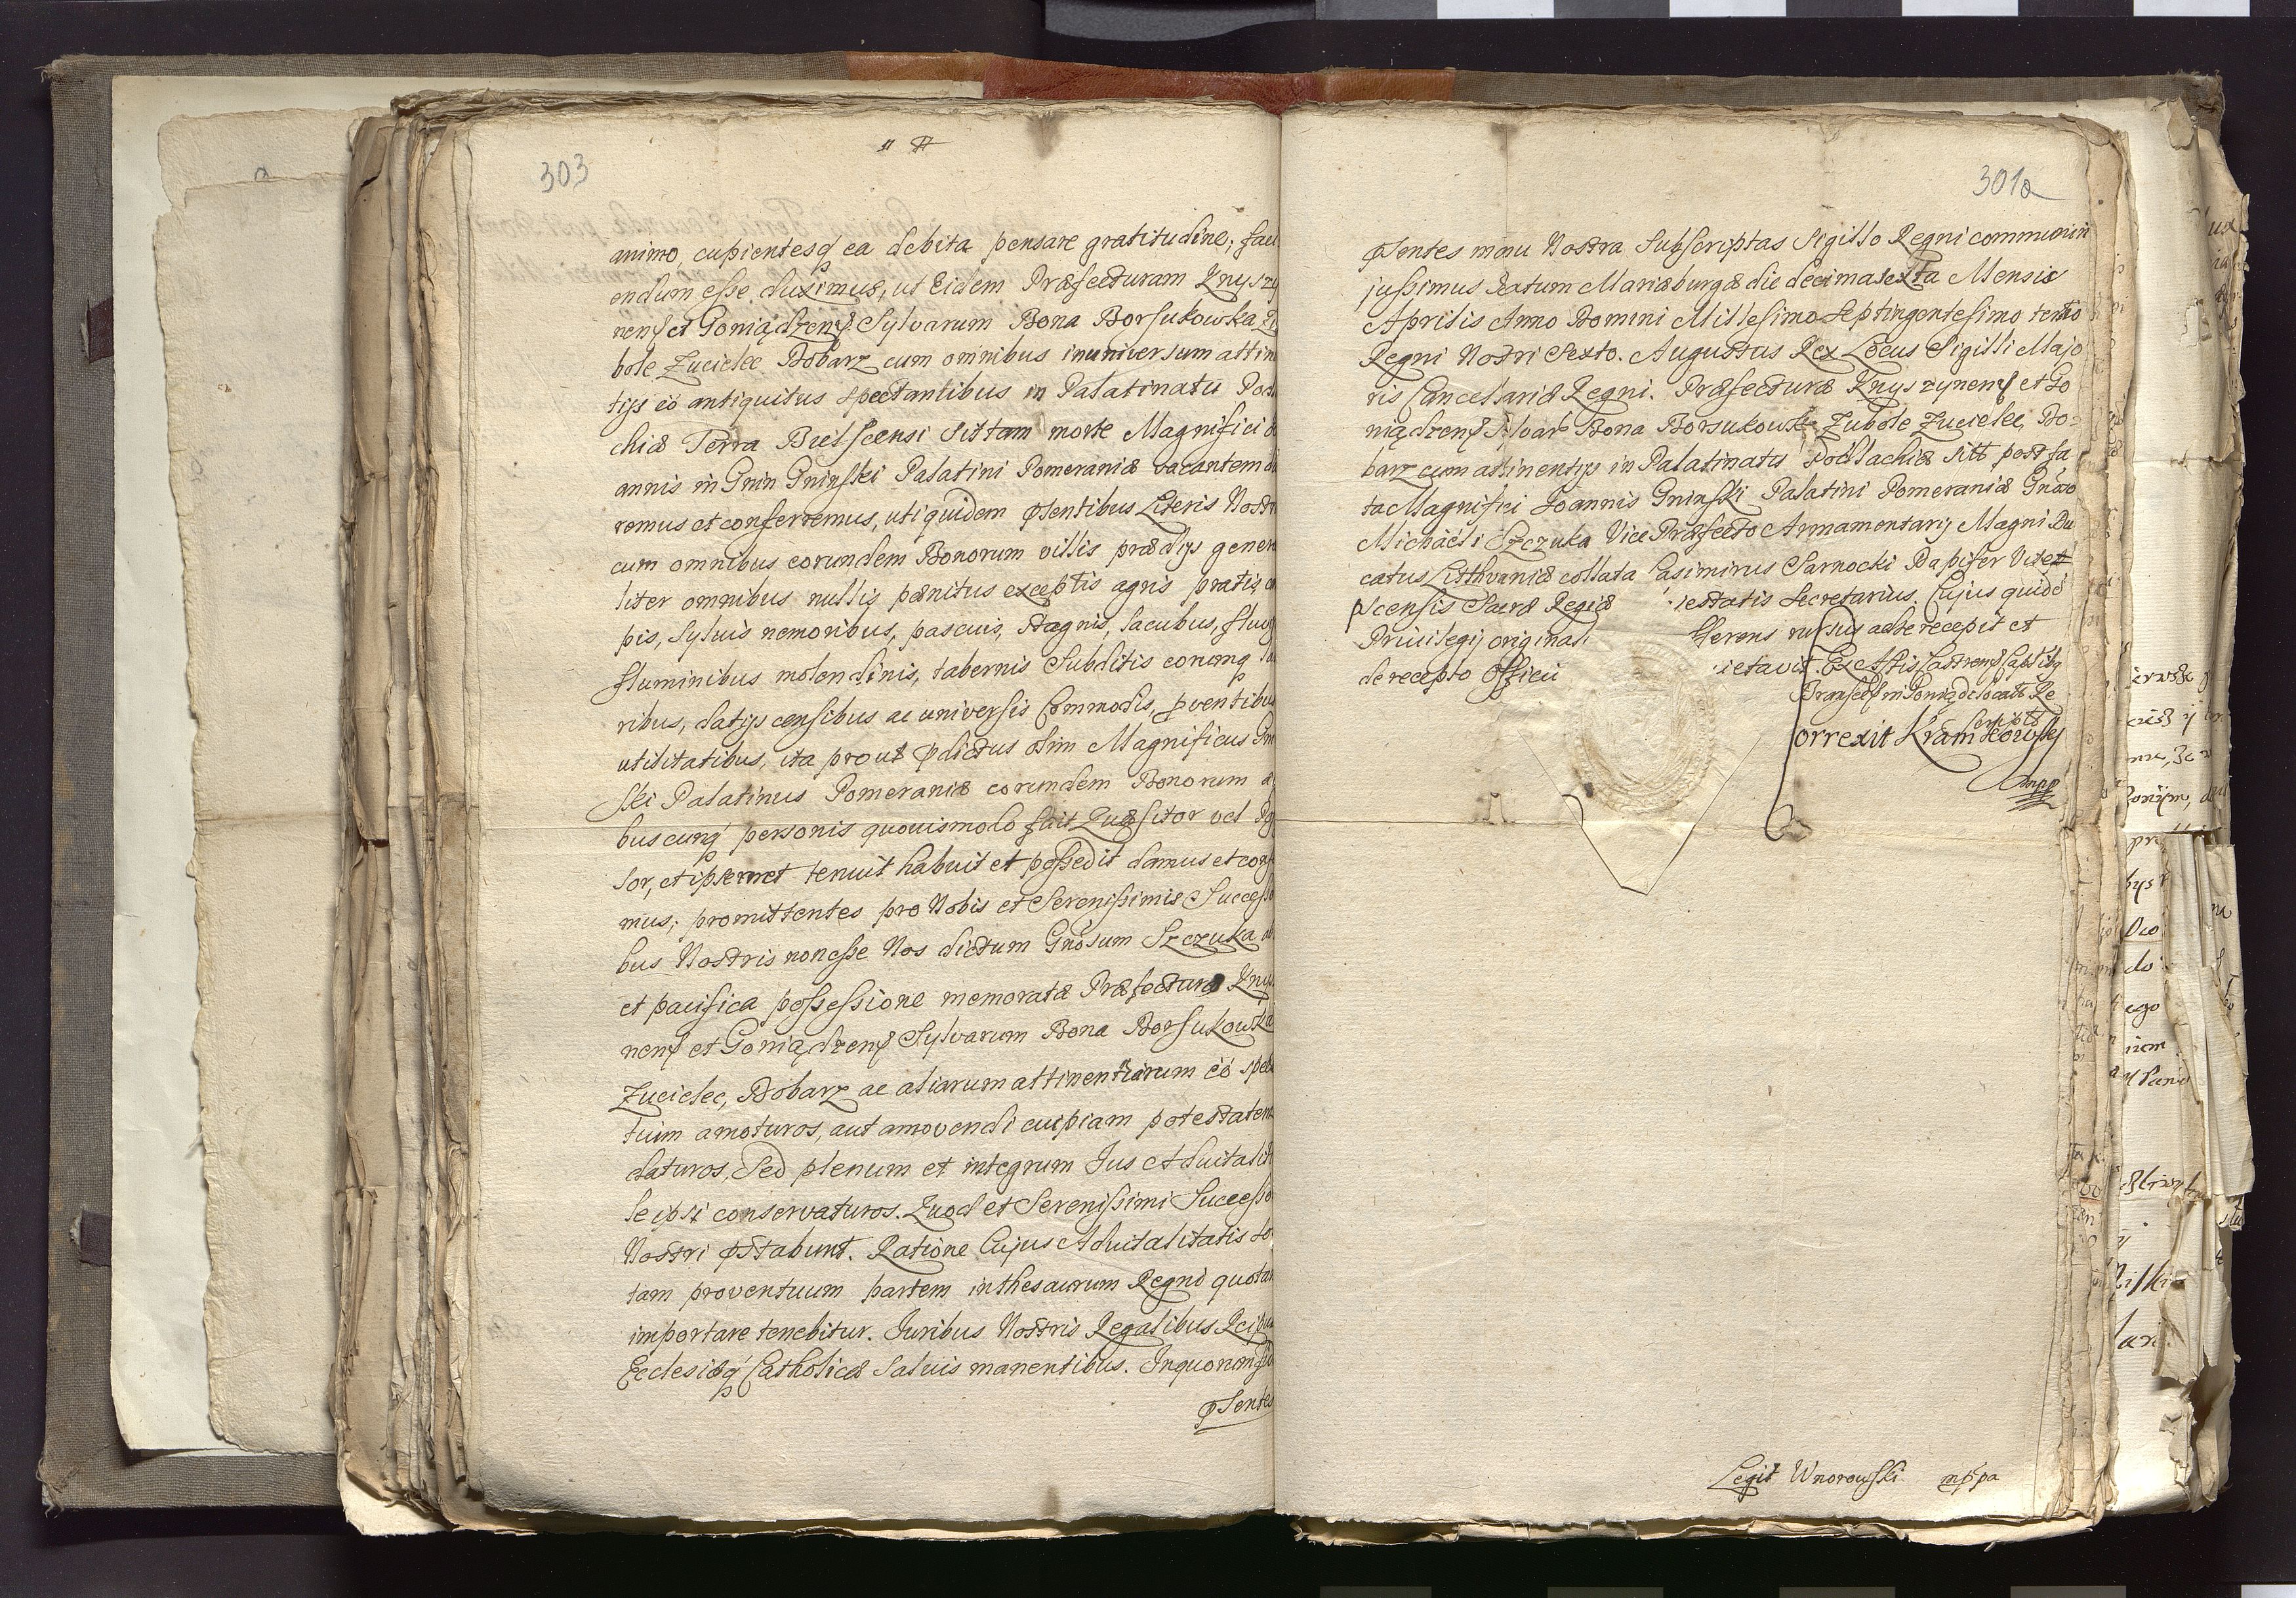 303
animo, cupientesq ea debita pensare gratitudine; faci
endum esse duximus, ut Eidem Præfecturam Knyszy
nens et Goniądzens Sylvarum Bona Borsukowka Zu
bole Zucielec Dobarz cum omnibus inuniversum attin
tijs eò antiquitus spectantibus in Palatinatu Podl
chiæ Terra Bielscensi sittam morte Magnifici Jo
annis in Gnin Gninski Palatini Pomeraniæ vacantem da
remus et conferremus, uti quidem pſentibus Literis Nostr
cum omnibus eorundem Bonorum villis prædijs genera
liter omnibus nullis pænitus exceptis agris pratis, ca
pis, sylvis nemoribus, pascuis, stagnis, lacubus, fluvijs
fluminibus molendinis, tabernis Subditis eorumq la
ribus, datijs censibus ac universis Commodis, pventibus
utilitatibus, ita prout pdictus olim Magnificus Gnin
ski Palatinus Pomeraniæ eorundem Bonorum a
buscunq personis quovismodo fuit Quæsitor vel Po
sor, et ipsemet tenuit habuit et possedit damus et confe
mus; promittentes pro Nobis et Serenissimis Successo
bus Nostris non esse Nos dictum Gnosum Szczuka ab
et pacifica possessione memoratæ Præfecturæ Knys
nens et Goniądzens Sylvarum Bona Borsukowka
Zucielec, Dobarz ac aliarum attinentiarum eò spec
tuim amoturos, aut amovendi cuipiam potestatem
daturos, Sed plenum et integrum Jus Advitalita
le ipsi conservaturos. Quod et Serenissimi Successo
Nostri pstabunt. Ratione Cujus Advitalitatis so
tam proventuum partem in thesaurum Regni quotan
importare tenebitur. Juribus Nostris Regalibus Reipu
Ecclesiæq Catholicæ Salvis manentibus. In quorum fid
pſentes
301a
pſentes manu Nostra Subscriptas Sigillo Regni communiri
jussimus Datum Mariæburgæ die decimasexta Mensis
Aprilis Anno Domini Millesimo Septingentesimo tertio
Regni Nostri Sexto. Augustus Rex Locus Sigilli Majo
ris Cancellariæ Regni. Præfecturæ Knyszynens et Go
niądzens Sylvar Bona Borsukowka Zubole Zucielec, Do=
barz cum attinentijs in Palatinatu Podlachiæ sitt post fa
ta Magnifici Joannis Gninski Palatini Pomeraniæ Gnoso
Michaëli Szczuka Vice Præfecto Armamentarij Magni Du
catus Litthvaniæ collata Casimirus Sarnocki Dapifer Vitet
pscensis Sacræ Regiæ iestatis Secretarius. Cujus quidē
Privilegij original fferens rursus ad se recepit et
de recepto Officii ietavit. Ex Actis Castrens Captibz
Bransces in Goniądz locatis Re
scripts
orrexit Kramkowski
mpp
Legit Wnorowski mppa